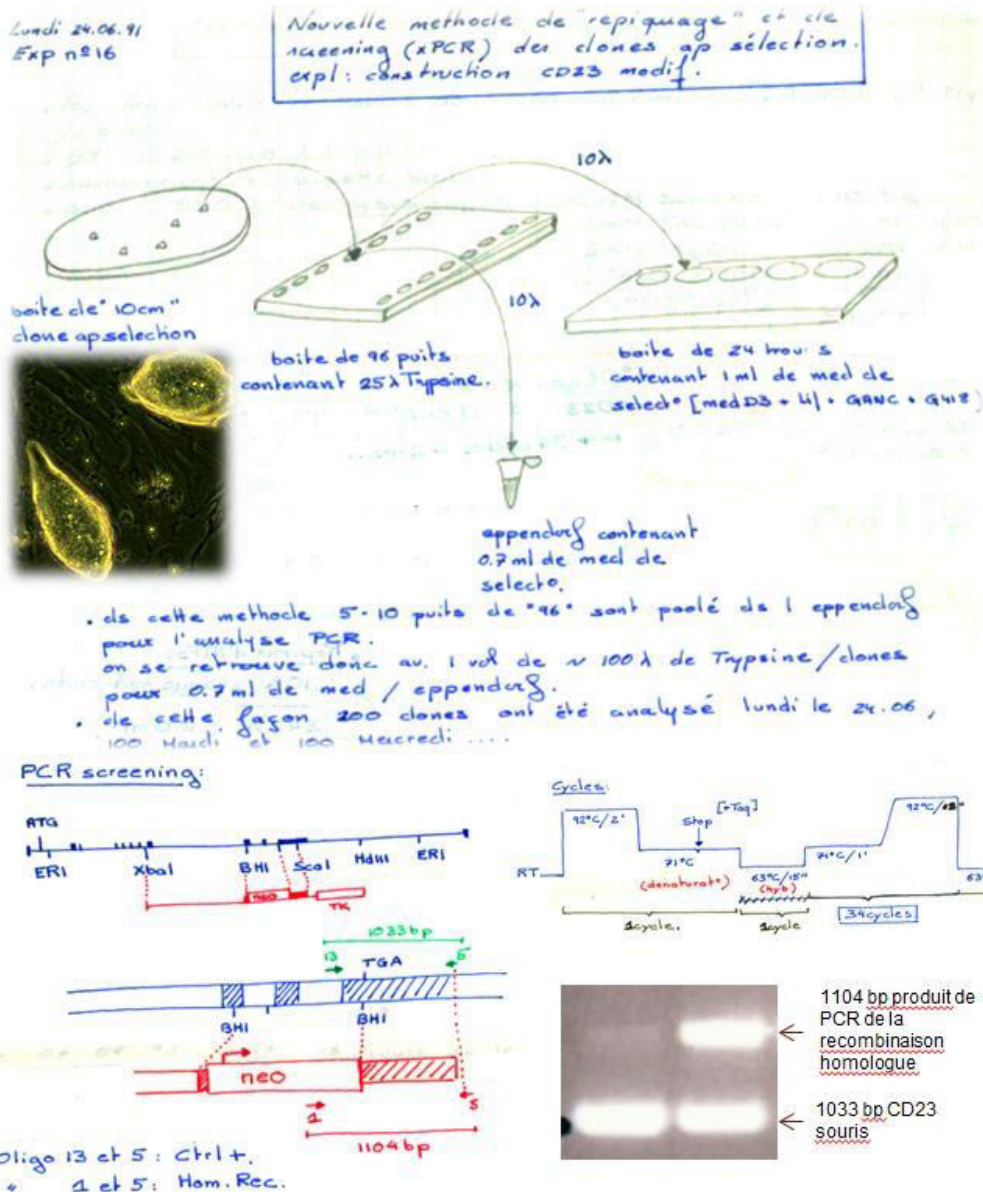 Lundi 24.06.91
Exp nº16
Nouvelle methode de "repiquage" et de
screening (xPCR) des clones ap sélection.
expl: construction CD23 modif.
10λ
10λ
boite de "10cm"
clone ap selection
boite de 96 puits
contenant 25λ Trypsine.
boite de 24 trous
contenant 1 ml de med de
select° [med D3 + Li] + GANC + G418)
eppendorf contenant
0.7 ml de med de
select°.
. ds cette methode 5-10 puits de "96" sont poolé ds 1 eppendorf
pour l'analyse PCR.
on se retrouve donc av. 1 vol de ~ 100λ de Trypsine/clones
pour 0.7 ml de med / eppendorf.
. de cette façon 200 clones ont été analysé lundi le 24.06,
100 Mardi et 100 Mercredi ....
PCR screening:
ATG
ERI
XbaI
BHI
ScaI
HdIII
ERI
neo
TK
1033bp
13
5
TGA
BHI
BHI
neo
1
5
1104bp
Oligo 13 et 5: Ctrl +.
" 1 et 5: Hom. Rec.
Cycles:
RT
92°C/2'
71°C
Stop
[+Taq]
(denaturat°)
63°C/15"
(hyb)
71°C/1'
63°
1cycle.
1cycle
34cycles
1104 bp produit de
PCR de la
recombinaison
homologue
1033 bp CD23
souris